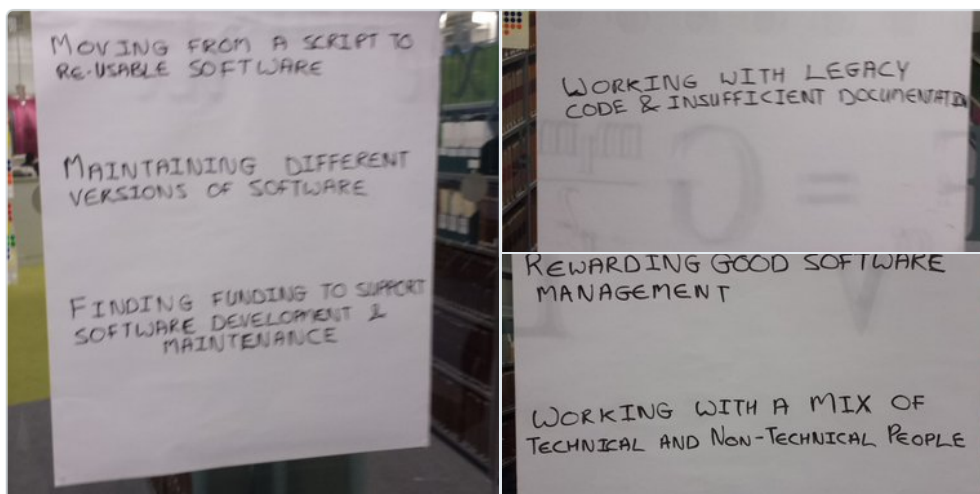 MOVING FROM A SCRIPT TO
RE-USABLE SOFTWARE
MAINTAINING DIFFERENT
VERSIONS OF SOFTWARE
FINDING FUNDING TO SUPPORT
SOFTWARE DEVELOPMENT &
MAINTENANCE
WORKING WITH LEGACY
CODE & INSUFFICIENT DOCUMENTATION
REWARDING GOOD SOFTWARE
MANAGEMENT
WORKING WITH A MIX OF
TECHNICAL AND NON-TECHNICAL PEOPLE